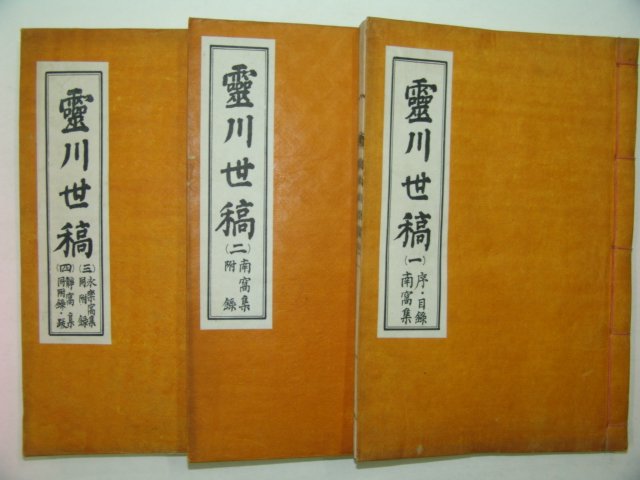 靈川世稿
(一)
序·目錄
南窩集
靈川世稿
(二)
南窩集
附錄
靈川世稿
(三)永樂窩集
同附錄
(四)靜窩集
同附錄·跋